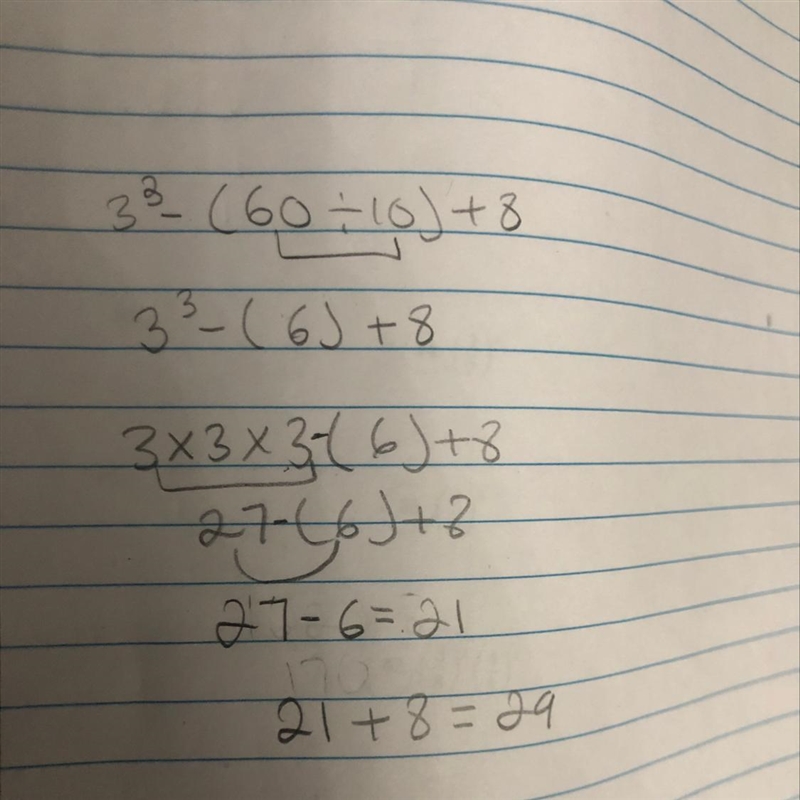 3³ - (60 ÷ 10) + 8
3³ - (6) + 8
3 × 3 × 3 - (6) + 8
27 - (6) + 8
27 - 6 = 21
170
21 + 8 = 29